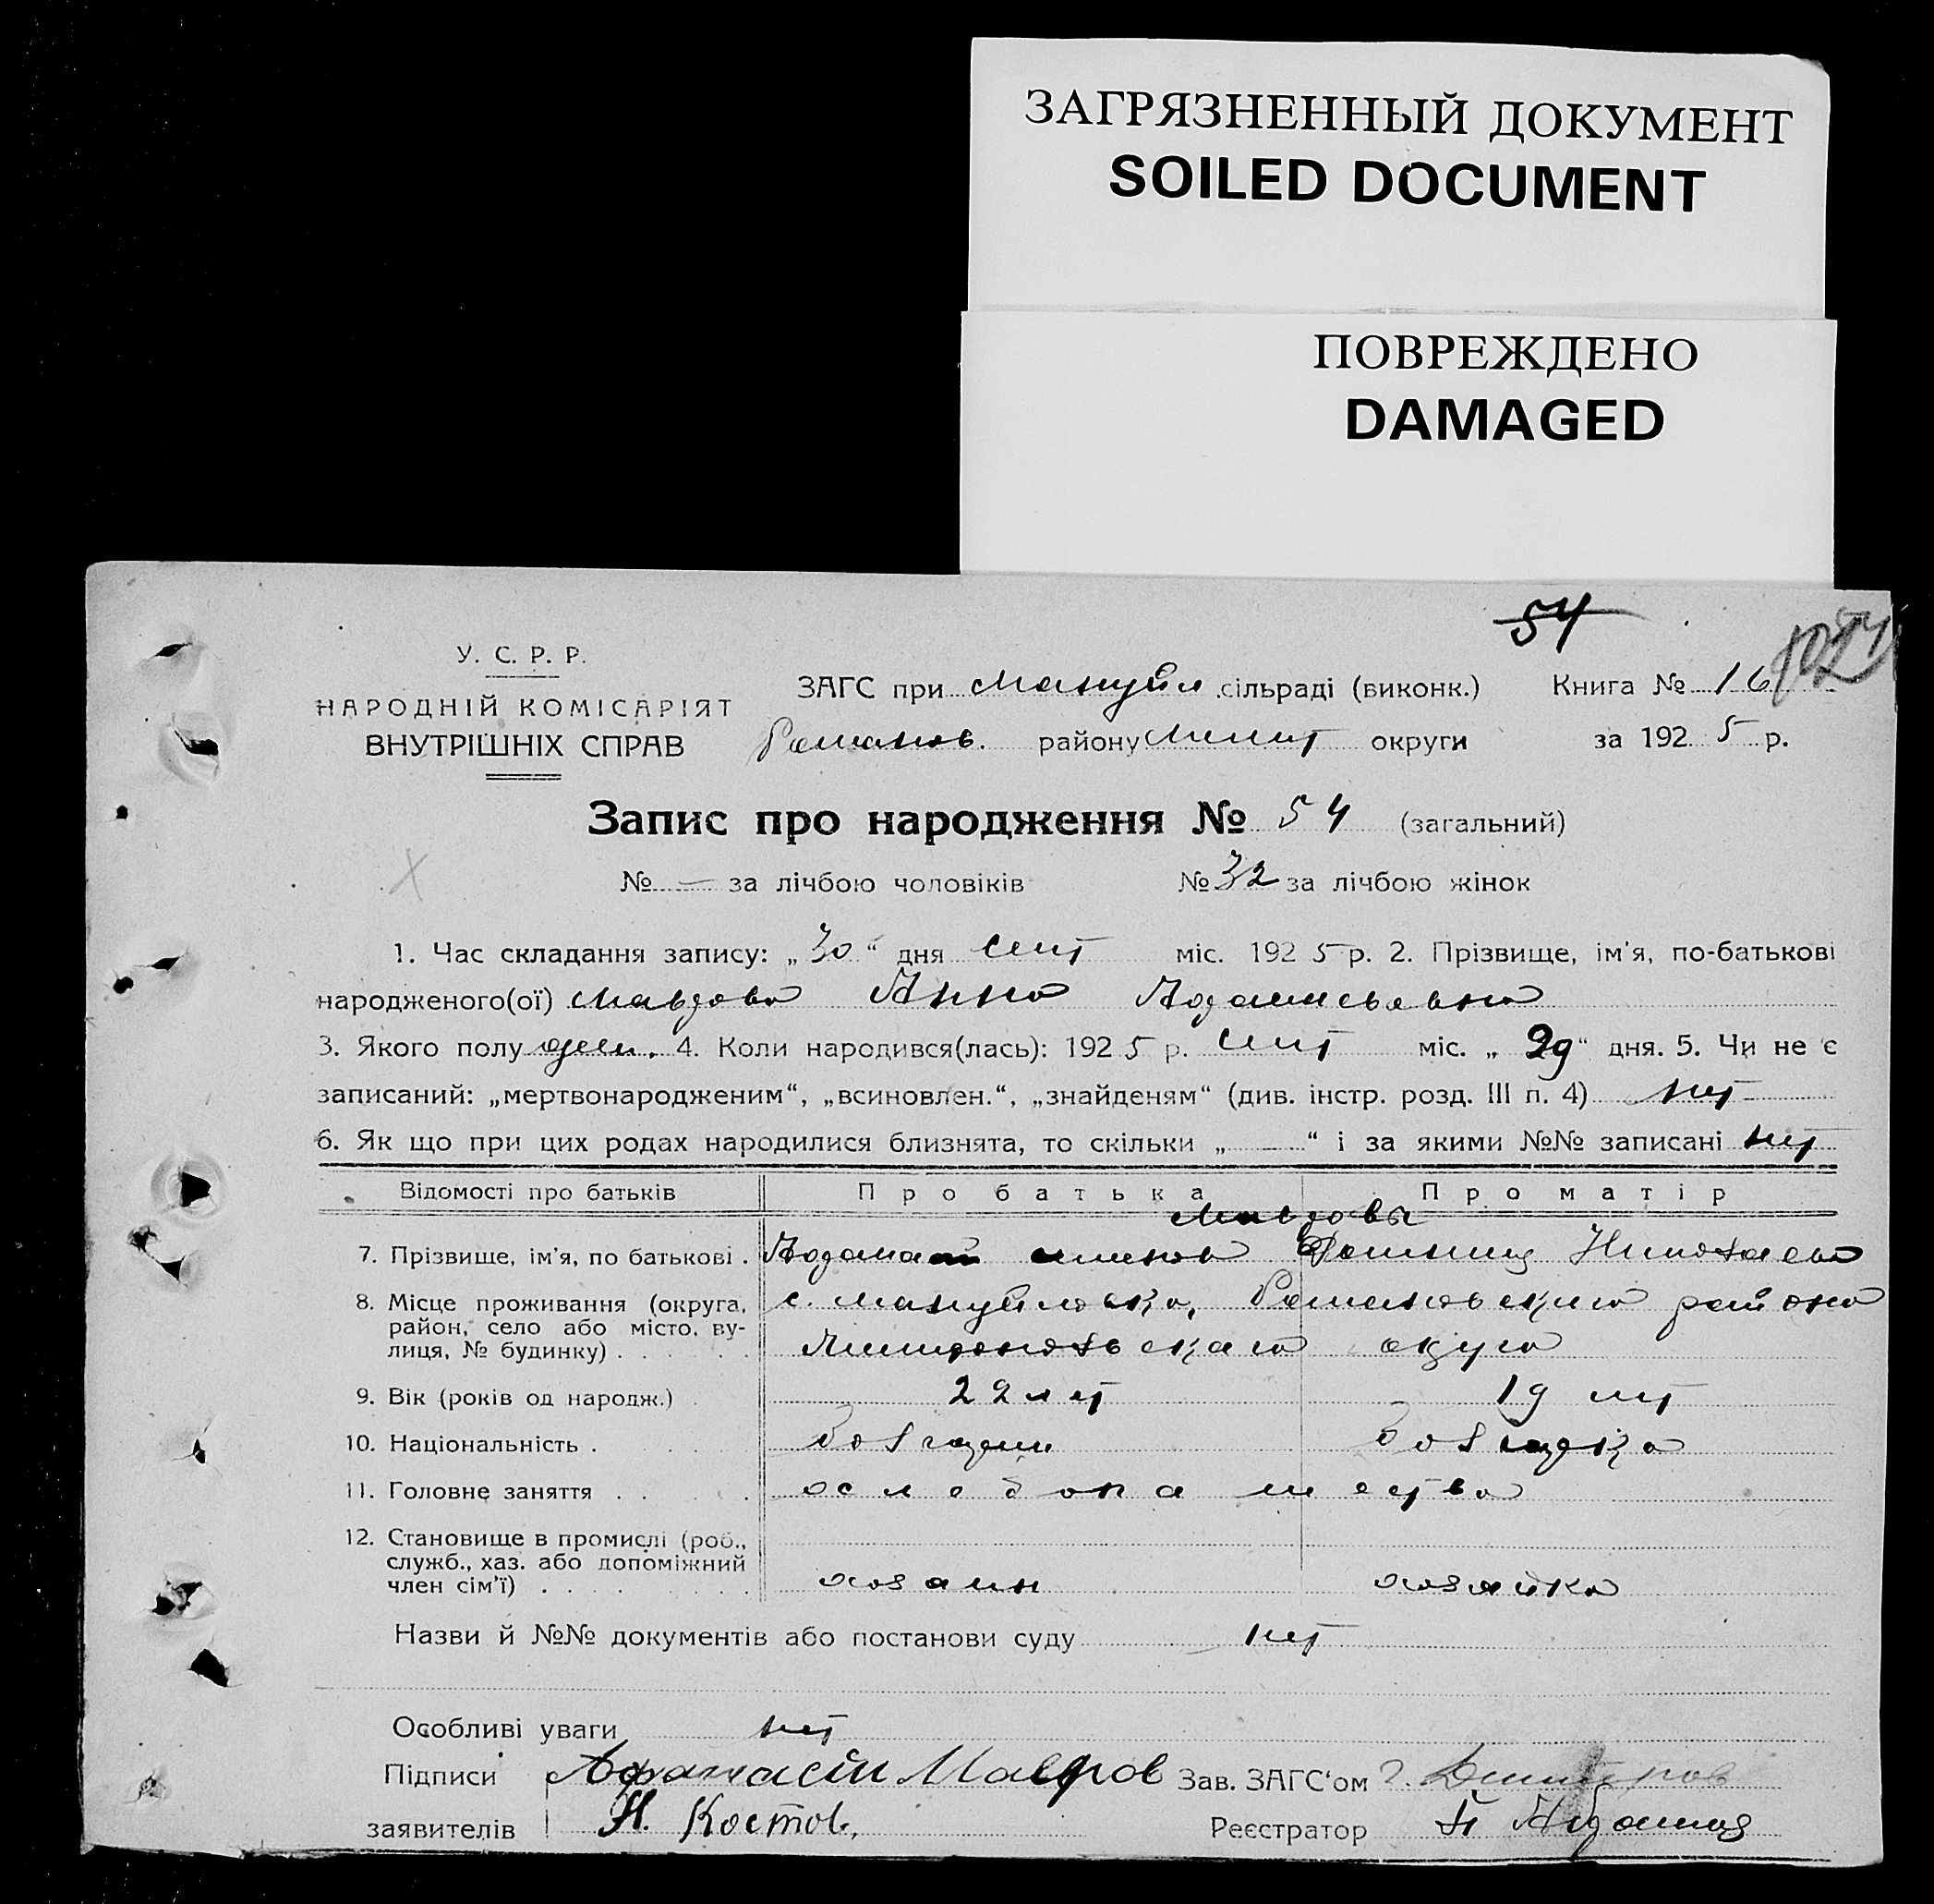 ЗАГРЯЗНЕННЫЙ ДОКУМЕНТ
SOILED DOCUMENT
ПОВРЕЖДЕНО
DAMAGED
54
У. С. Р. Р.
НАРОДНІЙ КОМІСАРІЯТ
ВНУТРІШНІХ СПРАВ
ЗАГС при Мануйл сільраді (виконк.) Книга № 16
Романов. району Мелит округи за 192 5 р.
Запис про народження № 54 (загальний)
№ — за лічбою чоловіків № 32 за лічбою жінок
1. Час складання запису: „30“ дня сент міс. 192 5 р. 2. Прізвище, ім'я, по-батькові
народженого(ої) Мавродова Анна
3. Якого полу жен. 4. Коли народився(лась): 192 5 р. сент міс. „29“ дня. 5. Чи не є
записаний: „мертвонародженим“, „всиновлен.“, „знайденям“ (див. інстр. розд. III п. 4) нет
6. Як що при цих родах народилися близнята, то скільки „—“ і за якими №№ записані нет
Відомості про батьків Про батька Про матір
7. Прізвище, ім'я, по батькові .
8. Місце проживання (округа, с. Мануйловка, Романовского района
район, село або місто, ву-
лиця, № будинку) . . . . . Мелитопольского округа
9. Вік (років од народж.) 22 лет 19 лет
10. Національність . болгарин болгарка
11. Головне заняття . . . хлебопашество
12. Становище в промислі (роб.,
служб., хаз. або допоміжний
член сім'ї) . . . . . хозаин хозаика
Назви й №№ документів або постанови суду нет
Особливі уваги нет
Підписи Афанасій Мавров Зав. ЗАГС'ом Г. Димитров
заявителів Н. Костов, Реєстратор